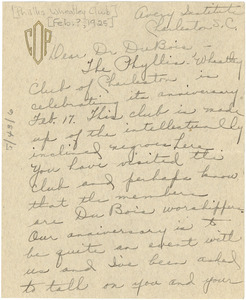 [Phyllis Wheatley Club]
[Feb. ?, 1925]
Avery Institute
Charleston S.C.
Dear Dr DuBois -
The Phyllis Wheatley
Club of Charleston is
celebrating its anniversary
Feb. 17. This club is made
up of the intellectually
inclined negroes here.
You have visited the
Club and perhaps know
that the members
are DuBois worshippers.
Our anniversary is to
be quite an event with
us and I've been asked
to talk on you and your